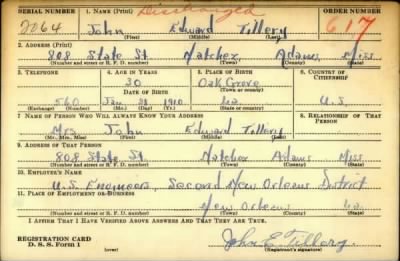 SERIAL NUMBER 1. NAME (Print) Discharged ORDER NUMBER
2064 John Edward Tillery 617
(First) (Middle) (Last)
2. ADDRESS (Print)
808 State St. Natchez, Adams, Miss
(Number and street or R. F. D. number) (Town) (County) (State)
3. TELEPHONE 4. AGE IN YEARS 5. PLACE OF BIRTH 6. COUNTRY OF CITIZENSHIP
30 Oak Grove
DATE OF BIRTH (Town or county)
560 Jan 31 1910 La U.S.
(Exchange) (Number) (Mo.) (Day) (Yr.) (State or country)
7. NAME OF PERSON WHO WILL ALWAYS KNOW YOUR ADDRESS 8. RELATIONSHIP OF THAT PERSON
Mrs. John Edward Tillery
(Mr., Mrs., Miss) (First) (Middle) (Last)
9. ADDRESS OF THAT PERSON
808 State St. Natchez Adams Miss.
(Number and street or R. F. D. number) (Town) (County) (State)
10. EMPLOYER'S NAME
U.S. Engineers, Second New Orleans District
11. PLACE OF EMPLOYMENT OR BUSINESS
New Orleans La
(Number and street or R. F. D. number) (Town) (County) (State)
I AFFIRM THAT I HAVE VERIFIED ABOVE ANSWERS AND THAT THEY ARE TRUE.
REGISTRATION CARD
D. S. S. Form 1 (over) John E. Tillery
(Registrant's signature)